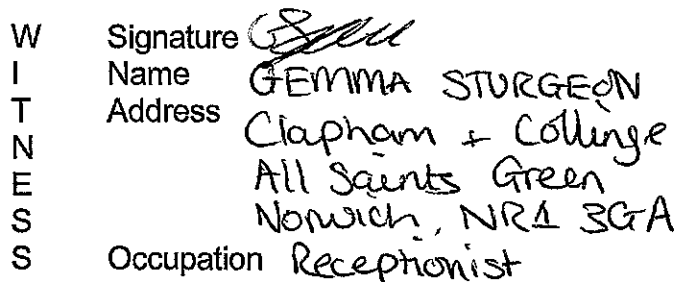 WITNESS
Signature
Name GEMMA STURGEON
Address Clapham + Collinge
All Saints Green
Norwich, NR1 3GA
Occupation Receptionist